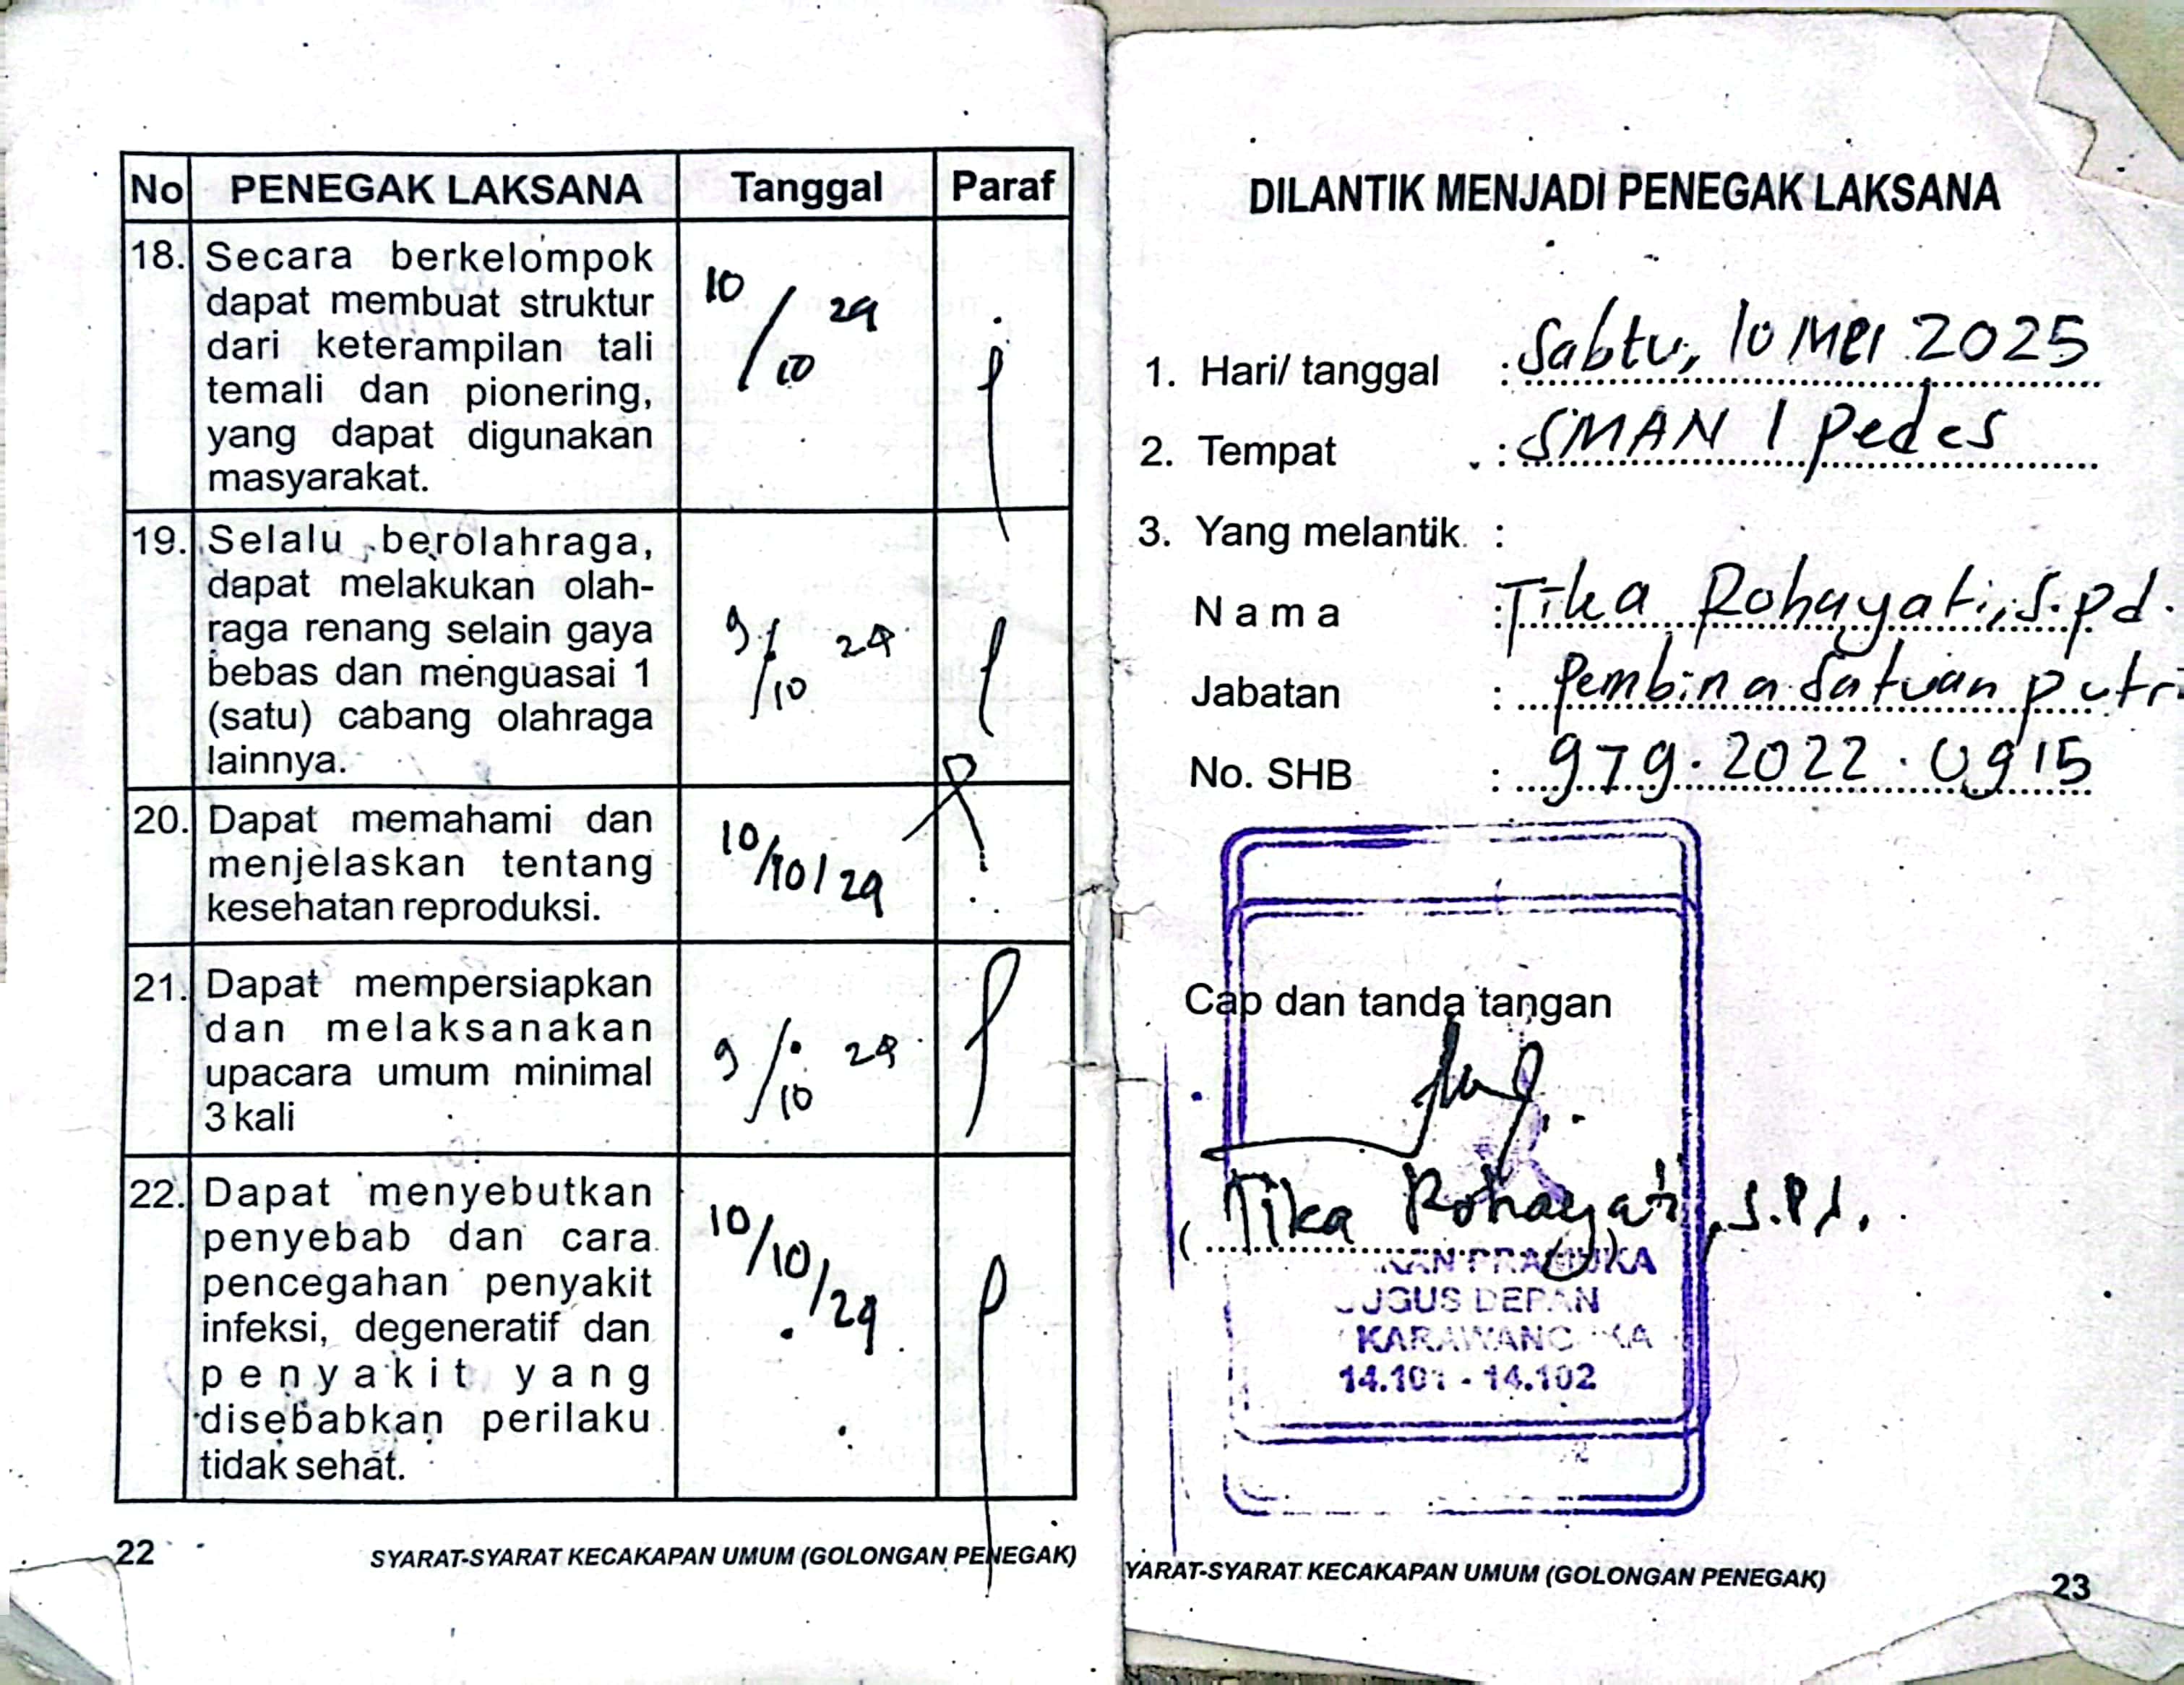 No PENEGAK LAKSANA Tanggal Paraf
18. Secara berkelompok
dapat membuat struktur
dari keterampilan tali
temali dan pionering,
yang dapat digunakan
masyarakat.
10/10 24
19. Selalu berolahraga,
dapat melakukan olah-
raga renang selain gaya
bebas dan menguasai 1
(satu) cabang olahraga
lainnya.
9/10 24
20. Dapat memahami dan
menjelaskan tentang
kesehatan reproduksi.
10/10/24
21. Dapat mempersiapkan
dan melaksanakan
upacara umum minimal
3 kali
9/10 24
22. Dapat menyebutkan
penyebab dan cara
pencegahan penyakit
infeksi, degeneratif dan
penyakit yang
disebabkan perilaku
tidak sehat.
10/10/24
22 SYARAT-SYARAT KECAKAPAN UMUM (GOLONGAN PENEGAK)
DILANTIK MENJADI PENEGAK LAKSANA
1. Hari/ tanggal : Sabtu, 10 Mei 2025
2. Tempat : SMAN 1 Pedes
3. Yang melantik :
Nama : Tika Rohayati, S.pd.
Jabatan : Pembina Satuan putr
No. SHB : 979.2022.0915
Cap dan tanda tangan
( Tika Rohayati, S.Pd.
PRAMUKA
GUS DEPAN
KARAWANG
14.101 - 14.102
YARAT-SYARAT KECAKAPAN UMUM (GOLONGAN PENEGAK) 23